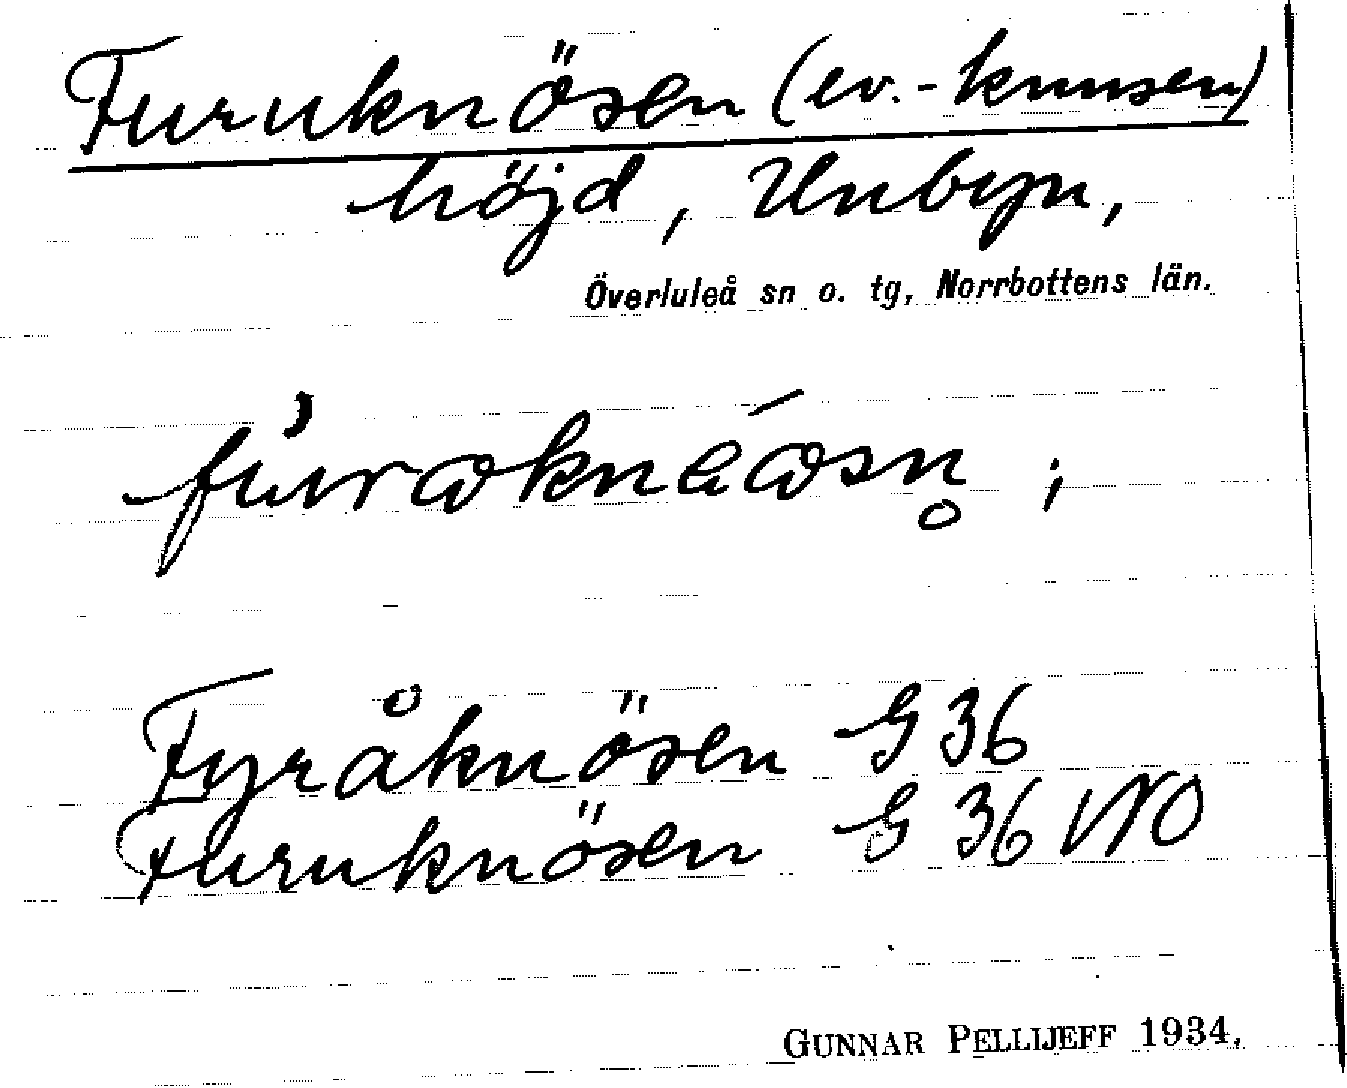 Furuknösen (ev. -knusen)
höjd, Unbyn,
Överluleå sn o. tg, Norrbottens län.
Fyråknösen G 36
Furuknösen G 36 NO
GUNNAR PELLIJEFF 1934,